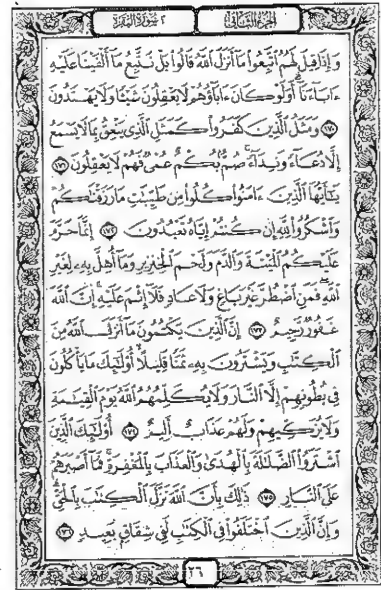 الجزء الثاني ٢ سورة البقرة
وَإِذَا قِيلَ لَهُمُ ٱتَّبِعُوا۟ مَآ أَنزَلَ ٱللَّهُ قَالُوا۟ بَلْ نَتَّبِعُ مَآ أَلْفَيْنَا عَلَيْهِ
ءَابَآءَنَآ أَوَلَوْ كَانَ ءَابَآؤُهُمْ لَا يَعْقِلُونَ شَيْـًٔا وَلَا يَهْتَدُونَ
١٧٠ وَمَثَلُ ٱلَّذِينَ كَفَرُوا۟ كَمَثَلِ ٱلَّذِى يَنْعِقُ بِمَا لَا يَسْمَعُ
إِلَّا دُعَآءً وَنِدَآءً صُمٌّۢ بُكْمٌ عُمْىٌ فَهُمْ لَا يَعْقِلُونَ ١٧١
يَـٰٓأَيُّهَا ٱلَّذِينَ ءَامَنُوا۟ كُلُوا۟ مِن طَيِّبَـٰتِ مَا رَزَقْنَـٰكُمْ
وَٱشْكُرُوا۟ لِلَّهِ إِن كُنتُمْ إِيَّاهُ تَعْبُدُونَ ١٧٢ إِنَّمَا حَرَّمَ
عَلَيْكُمُ ٱلْمَيْتَةَ وَٱلدَّمَ وَلَحْمَ ٱلْخِنزِيرِ وَمَآ أُهِلَّ بِهِۦ لِغَيْرِ
ٱللَّهِ فَمَنِ ٱضْطُرَّ غَيْرَ بَاغٍ وَلَا عَادٍ فَلَآ إِثْمَ عَلَيْهِ إِنَّ ٱللَّهَ
غَفُورٌ رَّحِيمٌ ١٧٣ إِنَّ ٱلَّذِينَ يَكْتُمُونَ مَآ أَنزَلَ ٱللَّهُ مِنَ
ٱلْكِتَـٰبِ وَيَشْتَرُونَ بِهِۦ ثَمَنًا قَلِيلًا أُو۟لَـٰٓئِكَ مَا يَأْكُلُونَ
فِى بُطُونِهِمْ إِلَّا ٱلنَّارَ وَلَا يُكَلِّمُهُمُ ٱللَّهُ يَوْمَ ٱلْقِيَـٰمَةِ
وَلَا يُزَكِّيهِمْ وَلَهُمْ عَذَابٌ أَلِيمٌ ١٧٤ أُو۟لَـٰٓئِكَ ٱلَّذِينَ
ٱشْتَرَوُا۟ ٱلضَّلَـٰلَةَ بِٱلْهُدَىٰ وَٱلْعَذَابَ بِٱلْمَغْفِرَةِ فَمَآ أَصْبَرَهُمْ
عَلَى ٱلنَّارِ ١٧٥ ذَٰلِكَ بِأَنَّ ٱللَّهَ نَزَّلَ ٱلْكِتَـٰبَ بِٱلْحَقِّ
وَإِنَّ ٱلَّذِينَ ٱخْتَلَفُوا۟ فِى ٱلْكِتَـٰبِ لَفِى شِقَاقٍۭ بَعِيدٍ ١٧٦
٢٦